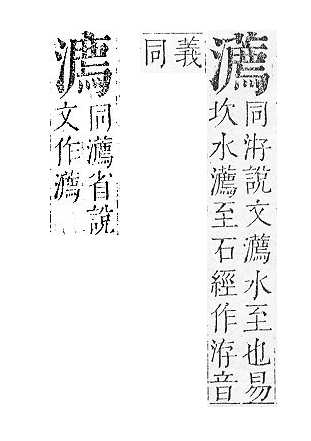 瀳
同洊說文瀳水至也易
坎水瀳至石經作洊音
義
同
同瀳省說
文作瀳